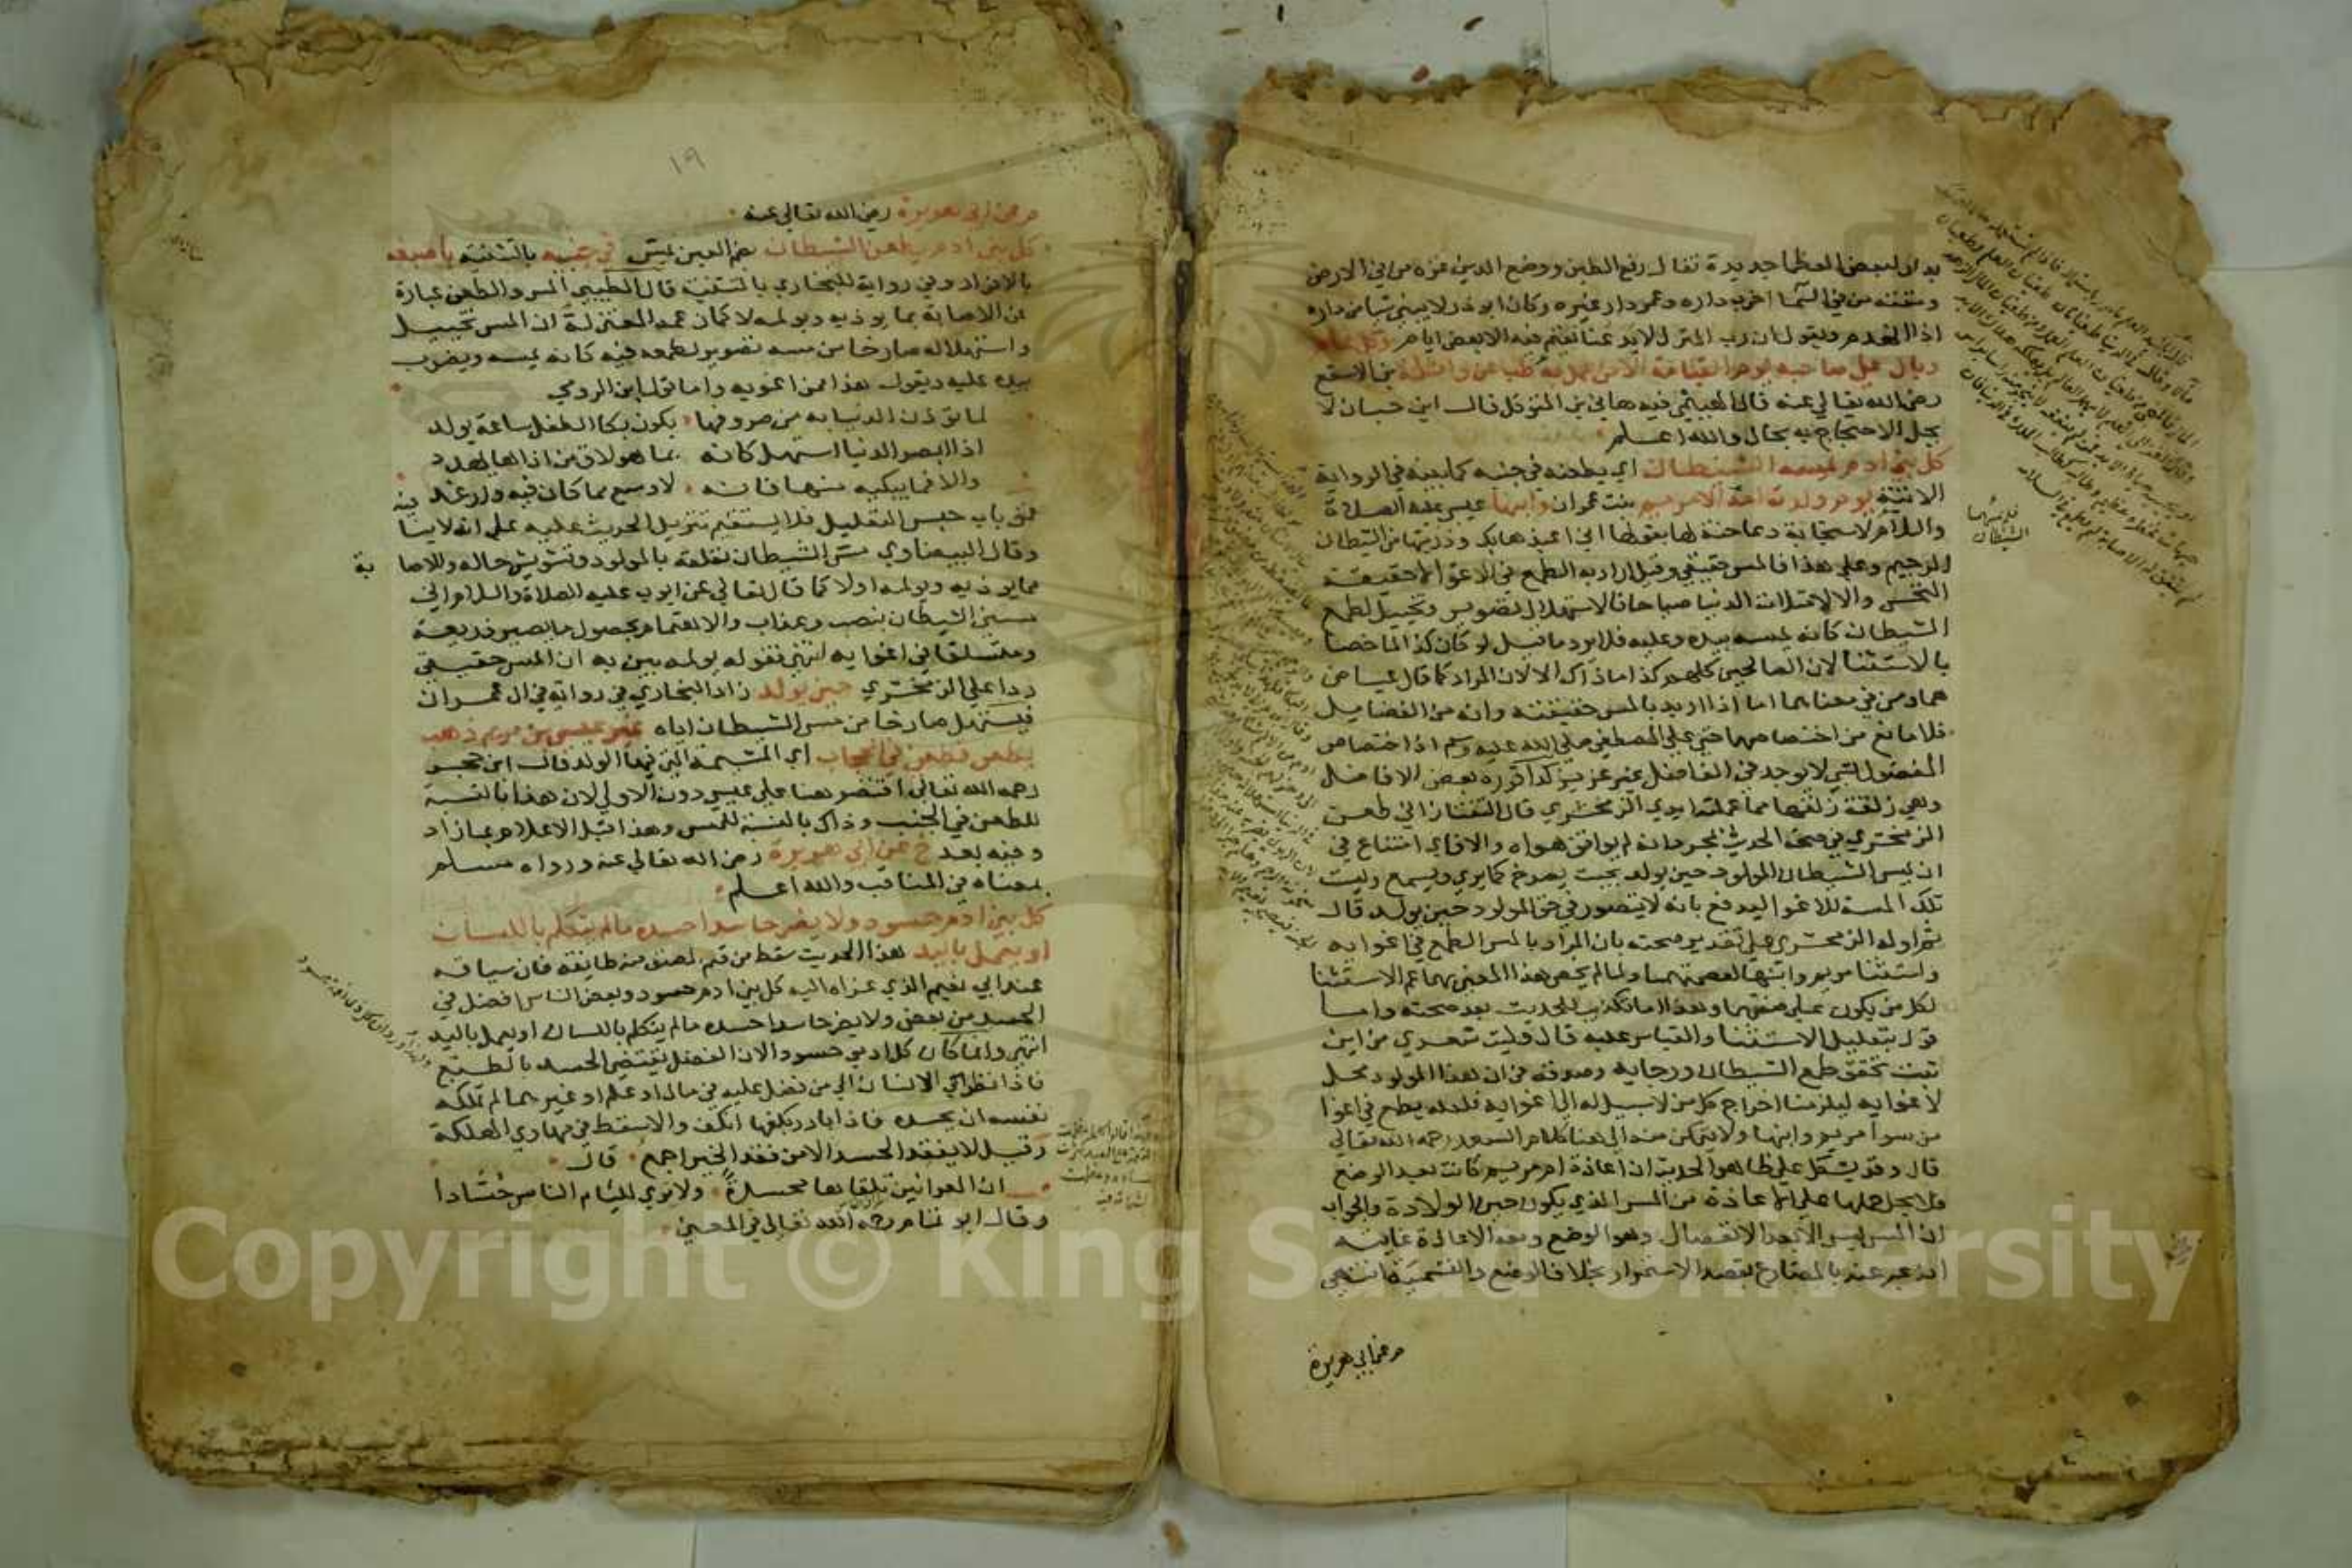 بدار لبعض العظما جديدة فقال رفع الطين ووضع الدين غره من في الارض
ومقته من في السما اخرب داره وعمر دار غيره وكان ابو ذر لا يبني شيا من داره
اذا انهدم ويقول ان رب المنزل لا يدعنا نقيم فيه الا بعض ايام وكل علم
وبال على صاحبه يوم القيامة الا من عمل به طب عن واثلة بن الاسقع
رضي الله تعالى عنه قال الهيثمي فيه هاني بن المتوكل قال ابن حبان لا
يحل الاحتجاج به بحال والله اعلم
كل بني ادم يمسه الشيطان اي يطعنه في جنبه كما بينه في الرواية
الاتية يوم ولدته امه الا مريم بنت عمران وابنها عيسى عليه الصلاة
والسلام لاستجابة دعا حنة لها بقولها اني اعيذها بك وذريتها من الشيطان
الرجيم وعلى هذا فالمس حقيقي وقيل اراد به الطمع في الاغوا لا حقيقة
النخس والا لامتلات الدنيا صياحا فالاستهلال تصوير وتخييل لطمع
الشيطان كانه يمسه بيده وعليه فلا يرد ما قيل لو كان كذا لما خصا
بالاستثنا لان الصالحين كلهم كذا ما ذاك الا لان المراد كما قال عياض
هما ومن في معناهما اما اذا اريد بالمس حقيقته وانه من الفضايل
فلا مانع من اختصاصهما حتى على المصطفى صلى الله عليه وسلم اذ اختصاص
المفضول بشي لا يوجد في الفاضل غير عزيز كذا قرره بعض الافاضل
وهي زلقة زلقها مما عملته ايدي الزمخشري قال التفتازاني طعن
الزمخشري في صحة الحديث بمجرد انه لم يوافق هواه والا فاي امتناع في
ان يمس الشيطان المولود حين يولد بحيث يصرخ كما يرى ويسمع وليست
تلك المسة للاغوا ليدفع بانه لا يتصور في حق المولود حين يولد قال
ثم اوله الزمخشري على تقدير صحته بان المراد بالمس الطمع في اغوايه
واستثنا مريم وابنها لعصمتهما ولما لم يخص هذا المعنى بهما عم الاستثنا
لكل من يكون على صفتهما وهذا اما تكذيب للحديث بعد صحته واما
قول بتعليل الاستثنا والقياس عليه قال وليت شعري من اين
ثبت تحقق طمع الشيطان ورجايه وصدقه في ان هذا المولود محل
لاغوايه ليلزمنا اخراج كل من لا سبيل له الى اغوايه فلعله يطمع في اغوا
من سوا مريم وابنها ولا يتمكن منه الى هنا كلام السعد رحمه الله تعالى
قال وقد يشكل على ظاهر الحديث ان اعاذة ام مريم كانت بعد الوضع
فلا يحل حملها على الاعاذة من المس الذي يكون حين الولادة والجواب
ان المس ليس الا بعد الانفصال وهو الوضع ومعه الاعاذة غايته
انه عبر عنه بالمضارع لقصد الاستمرار بخلاف الوضع والتسمية انتهى
م عن ابي هريرة
فلم يمسهما
الشيطان
١٩
م عن ابي هريرة رضي الله تعالى عنه
كل بني ادم يطعن الشيطان بضم العين يمس في جنبيه بالتثنية باصبعه
بالافراد وفي رواية للبخاري بالتثنية قال الطيبي المس والطعن عبارة
عن الاصابة بما يوذيه ويولمه لا كما زعمه المعتزلة ان المس تخييل
واستهلاله صارخا من مسه تصوير لطمعه فيه كانه يمسه ويضرب
بيده عليه ويقول هذا ممن اغويه واما قول ابن الرومي
لما توذن الدنيا به من صروفها يكون بكا الطفل ساعة يولد
اذا ابصر الدنيا استهل كانه بما هو لاق من اذاها يهدد
والا فما يبكيه منها فانه لاوسع مما كان فيه وارغد
فمن باب حسن التعليل فلا يستقيم تنزيل الحديث عليه على انه لا ينا فيه
وقال البيضاوي مس الشيطان تعلقه بالمولود وتشويش حاله والاصا بة
مما يوذيه ويولمه اولا كما قال تعالى عن ايوب عليه الصلاة والسلام اني
مسني الشيطان بنصب وعذاب والاهتمام بحصول ما يصير ذريعة
ومتسلقا في اغوايه انتهى فقوله يولمه يبين به ان المس حقيقي
ردا على الزمخشري حين يولد زاد البخاري في رواية في ال عمران
فيستهل صارخا من مس الشيطان اياه غير عيسى بن مريم ذهب
يطعن فطعن في الحجاب اي المشيمة التي فيها الولد قال ابن حجر
رحمه الله تعالى اقتصر هنا على عيسى دون الاولى لان هذا بالنسبة
للطعن في الجنب وذاك بالنسبة للمس وهذا قبل الاعلام بما زاد
وفيه بعد خ عن ابي هريرة رضي الله تعالى عنه ورواه مسلم
بمعناه في المناقب والله اعلم
كل بني ادم حسود ولا يضر حاسدا حسده ما لم يتكلم باللسان
او يعمل باليد هذا الحديث سقط من قلم المصنف منه طايفة فان سياقه
عند ابي نعيم الذي عزاه اليه كل بني ادم حسود وبعض الناس افضل في
الحسد من بعض ولا يضر حاسدا حسده ما لم يتكلم باللسان او يعمل باليد
انتهى وانما كان كل ادمي حسود الان الفضل يقتضي الحسد بالطبع
فاذا نظر الانسان الى من فضل عليه في مال او علم او غيرهما لم تملكه
نفسه ان يحسده فاذا بادر بكفها انكف والا سقط في مهاوي الهلكة
وقيل لا يفقد الحسد الا من فقد الخير اجمع قال
ان العرانين تلقاها محسدة ولا ترى للئام الناس حسادا
وقال ابو تمام رحمه الله تعالى في المعنى
Copyright © King Saud University
1957